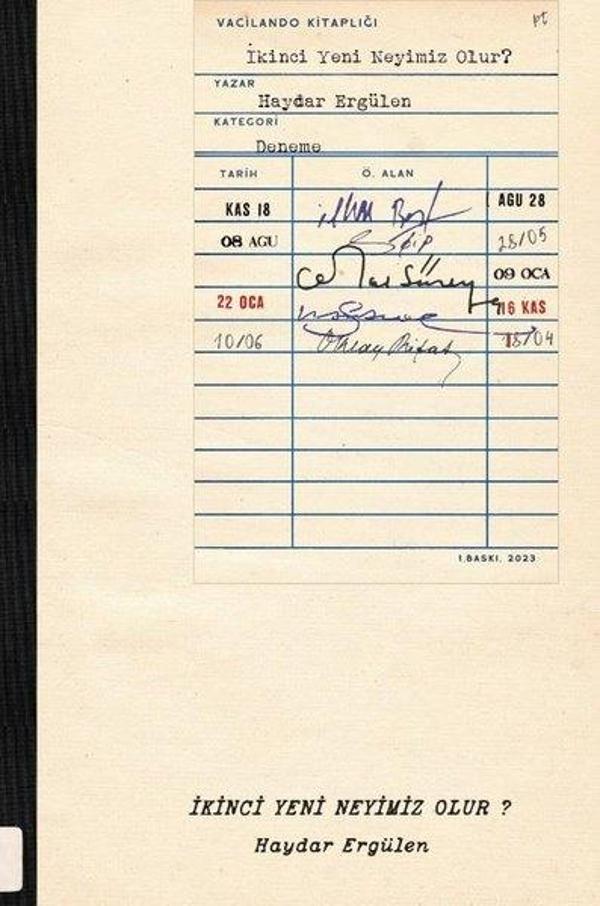 VACİLANDO KİTAPLIĞI pt
İkinci Yeni Neyimiz Olur?
YAZAR
Haydar Ergülen
KATEGORİ
Deneme
TARİH Ö. ALAN
KAS 18 ilhan Berk AGU 28
08 AGU 28/05
Cemal Süreya 09 OCA
22 OCA 16 KAS
10/06 Oktay Rifat 18/04
1.BASKI, 2023
İKİNCİ YENİ NEYİMİZ OLUR ?
Haydar Ergülen